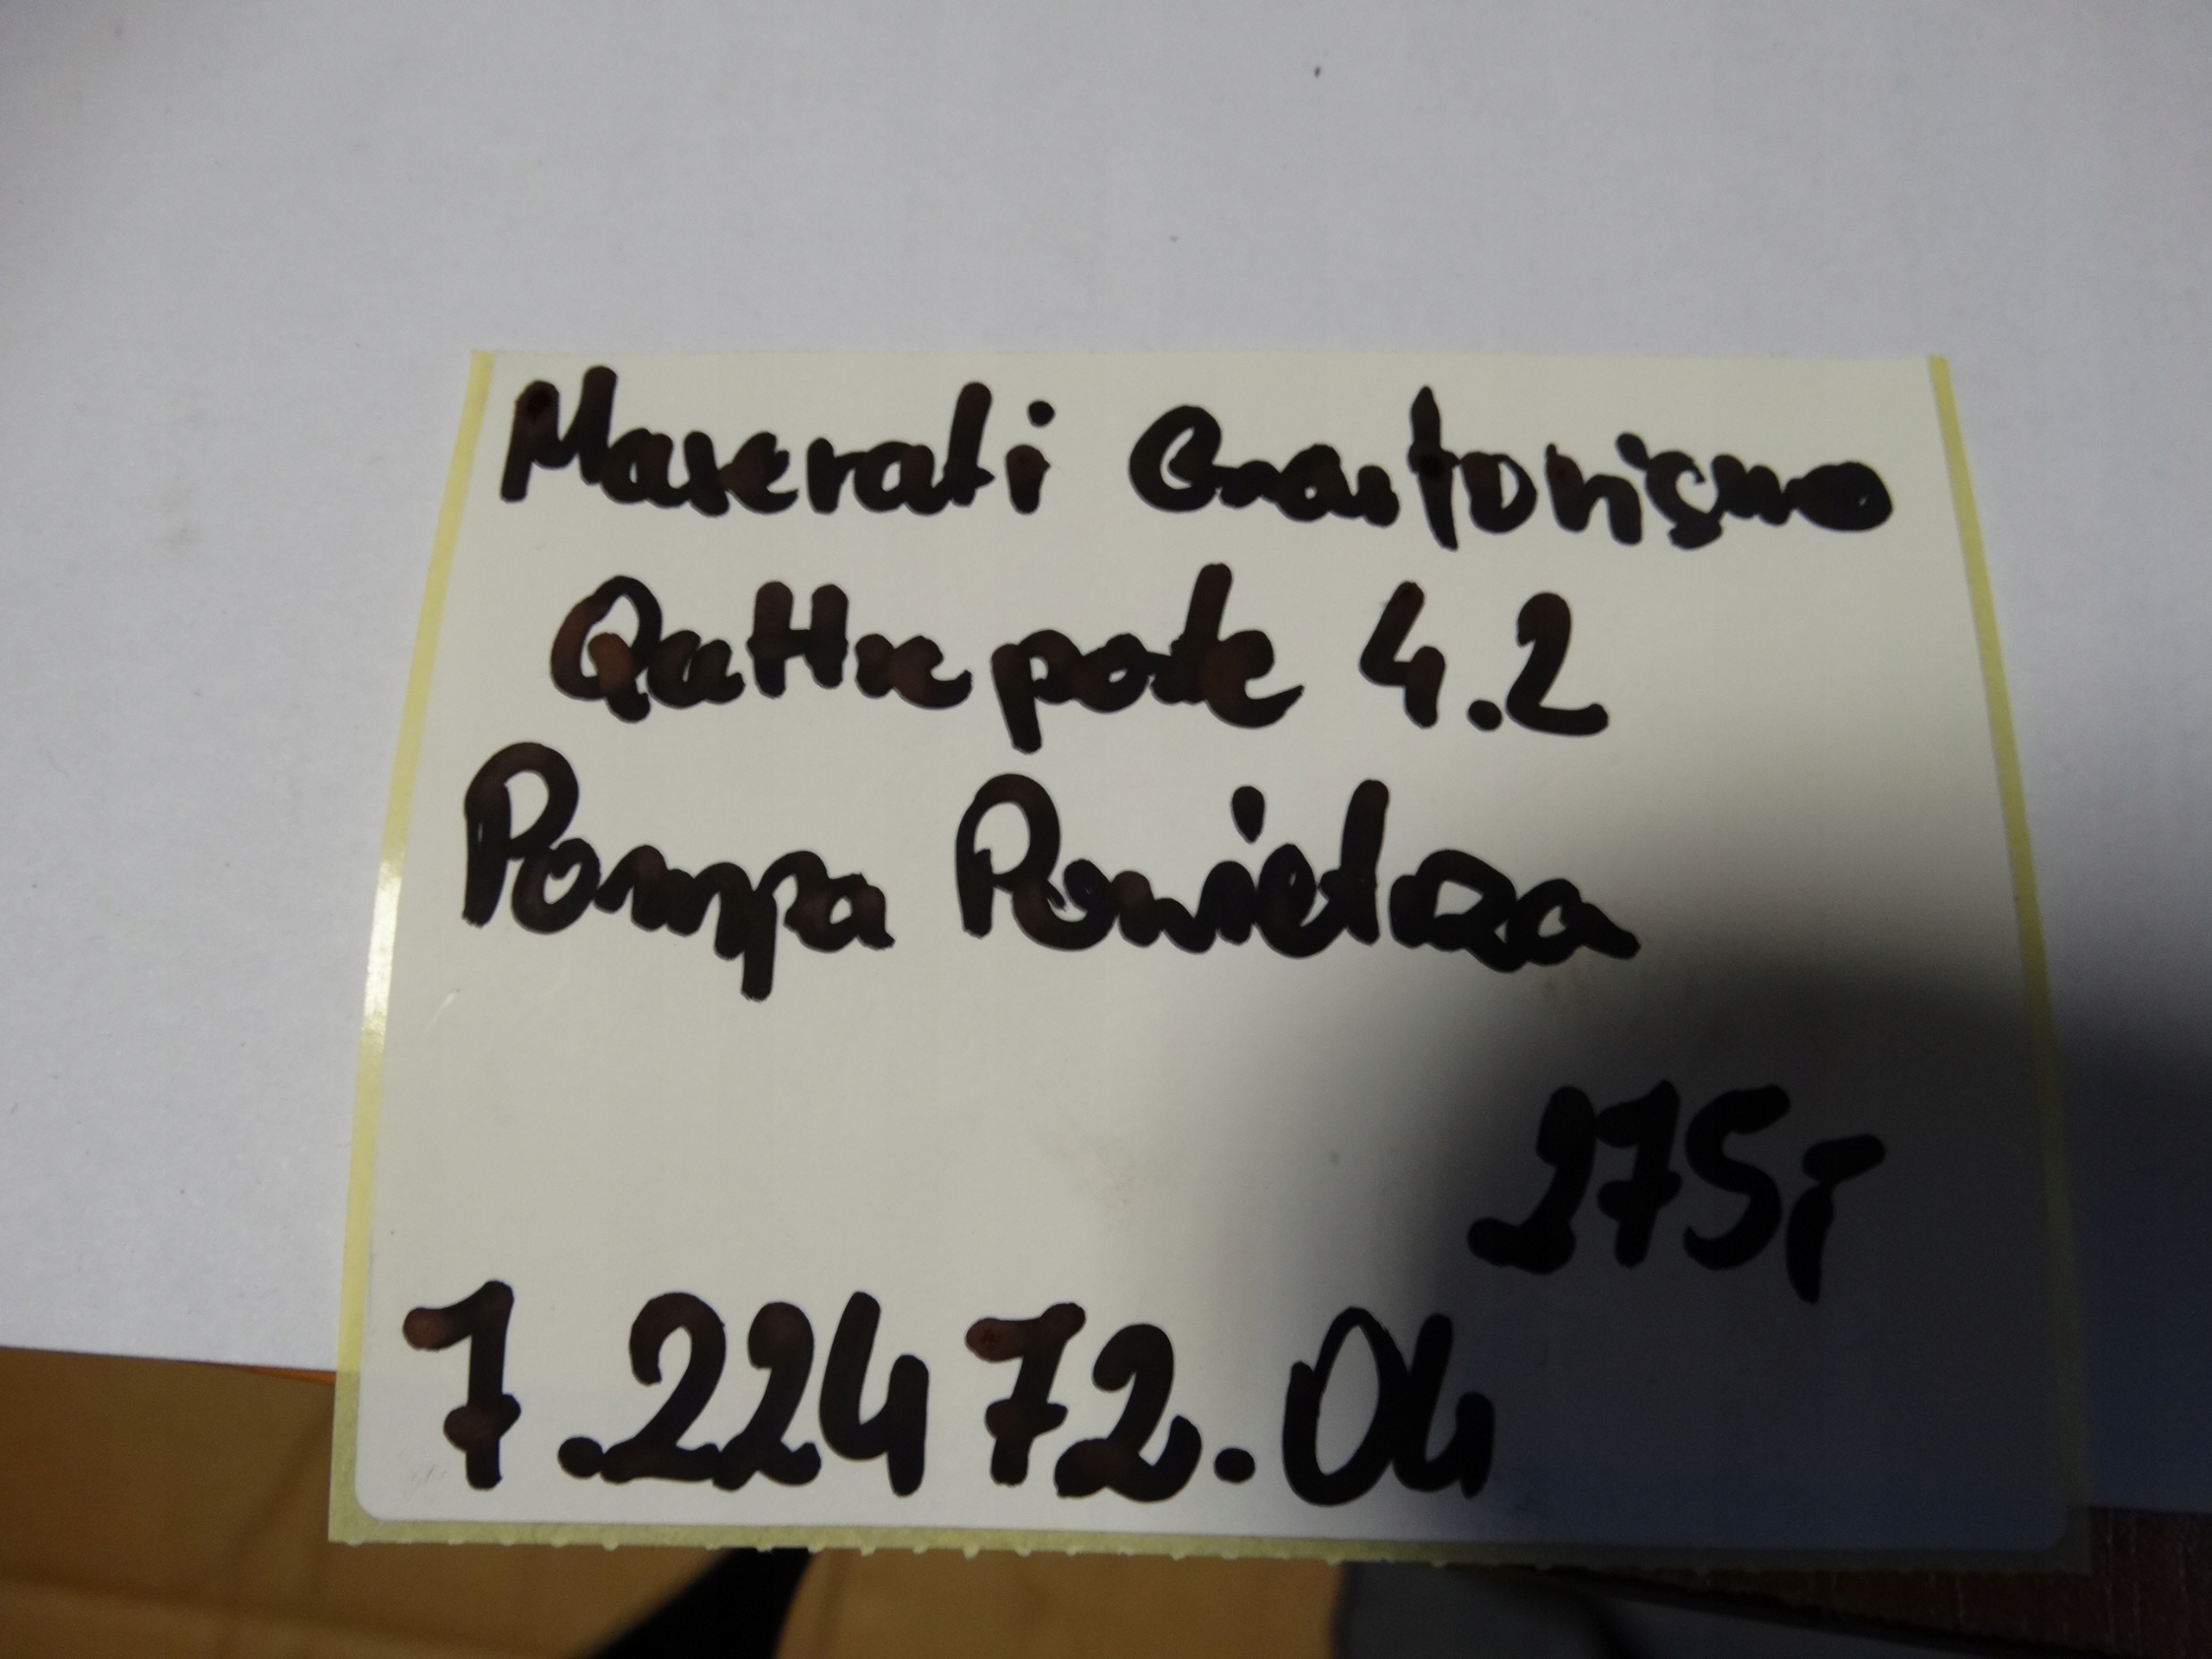 Maserati Grantorismo
Quattreporte 4.2
Pompa Powietrza
7.22472.04